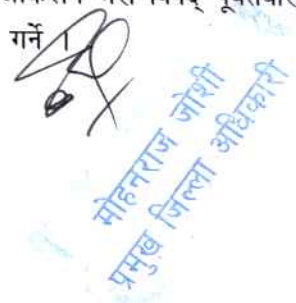 गर्ने ।
मोहनराज जोशी
प्रमुख जिल्ला अधिकारी